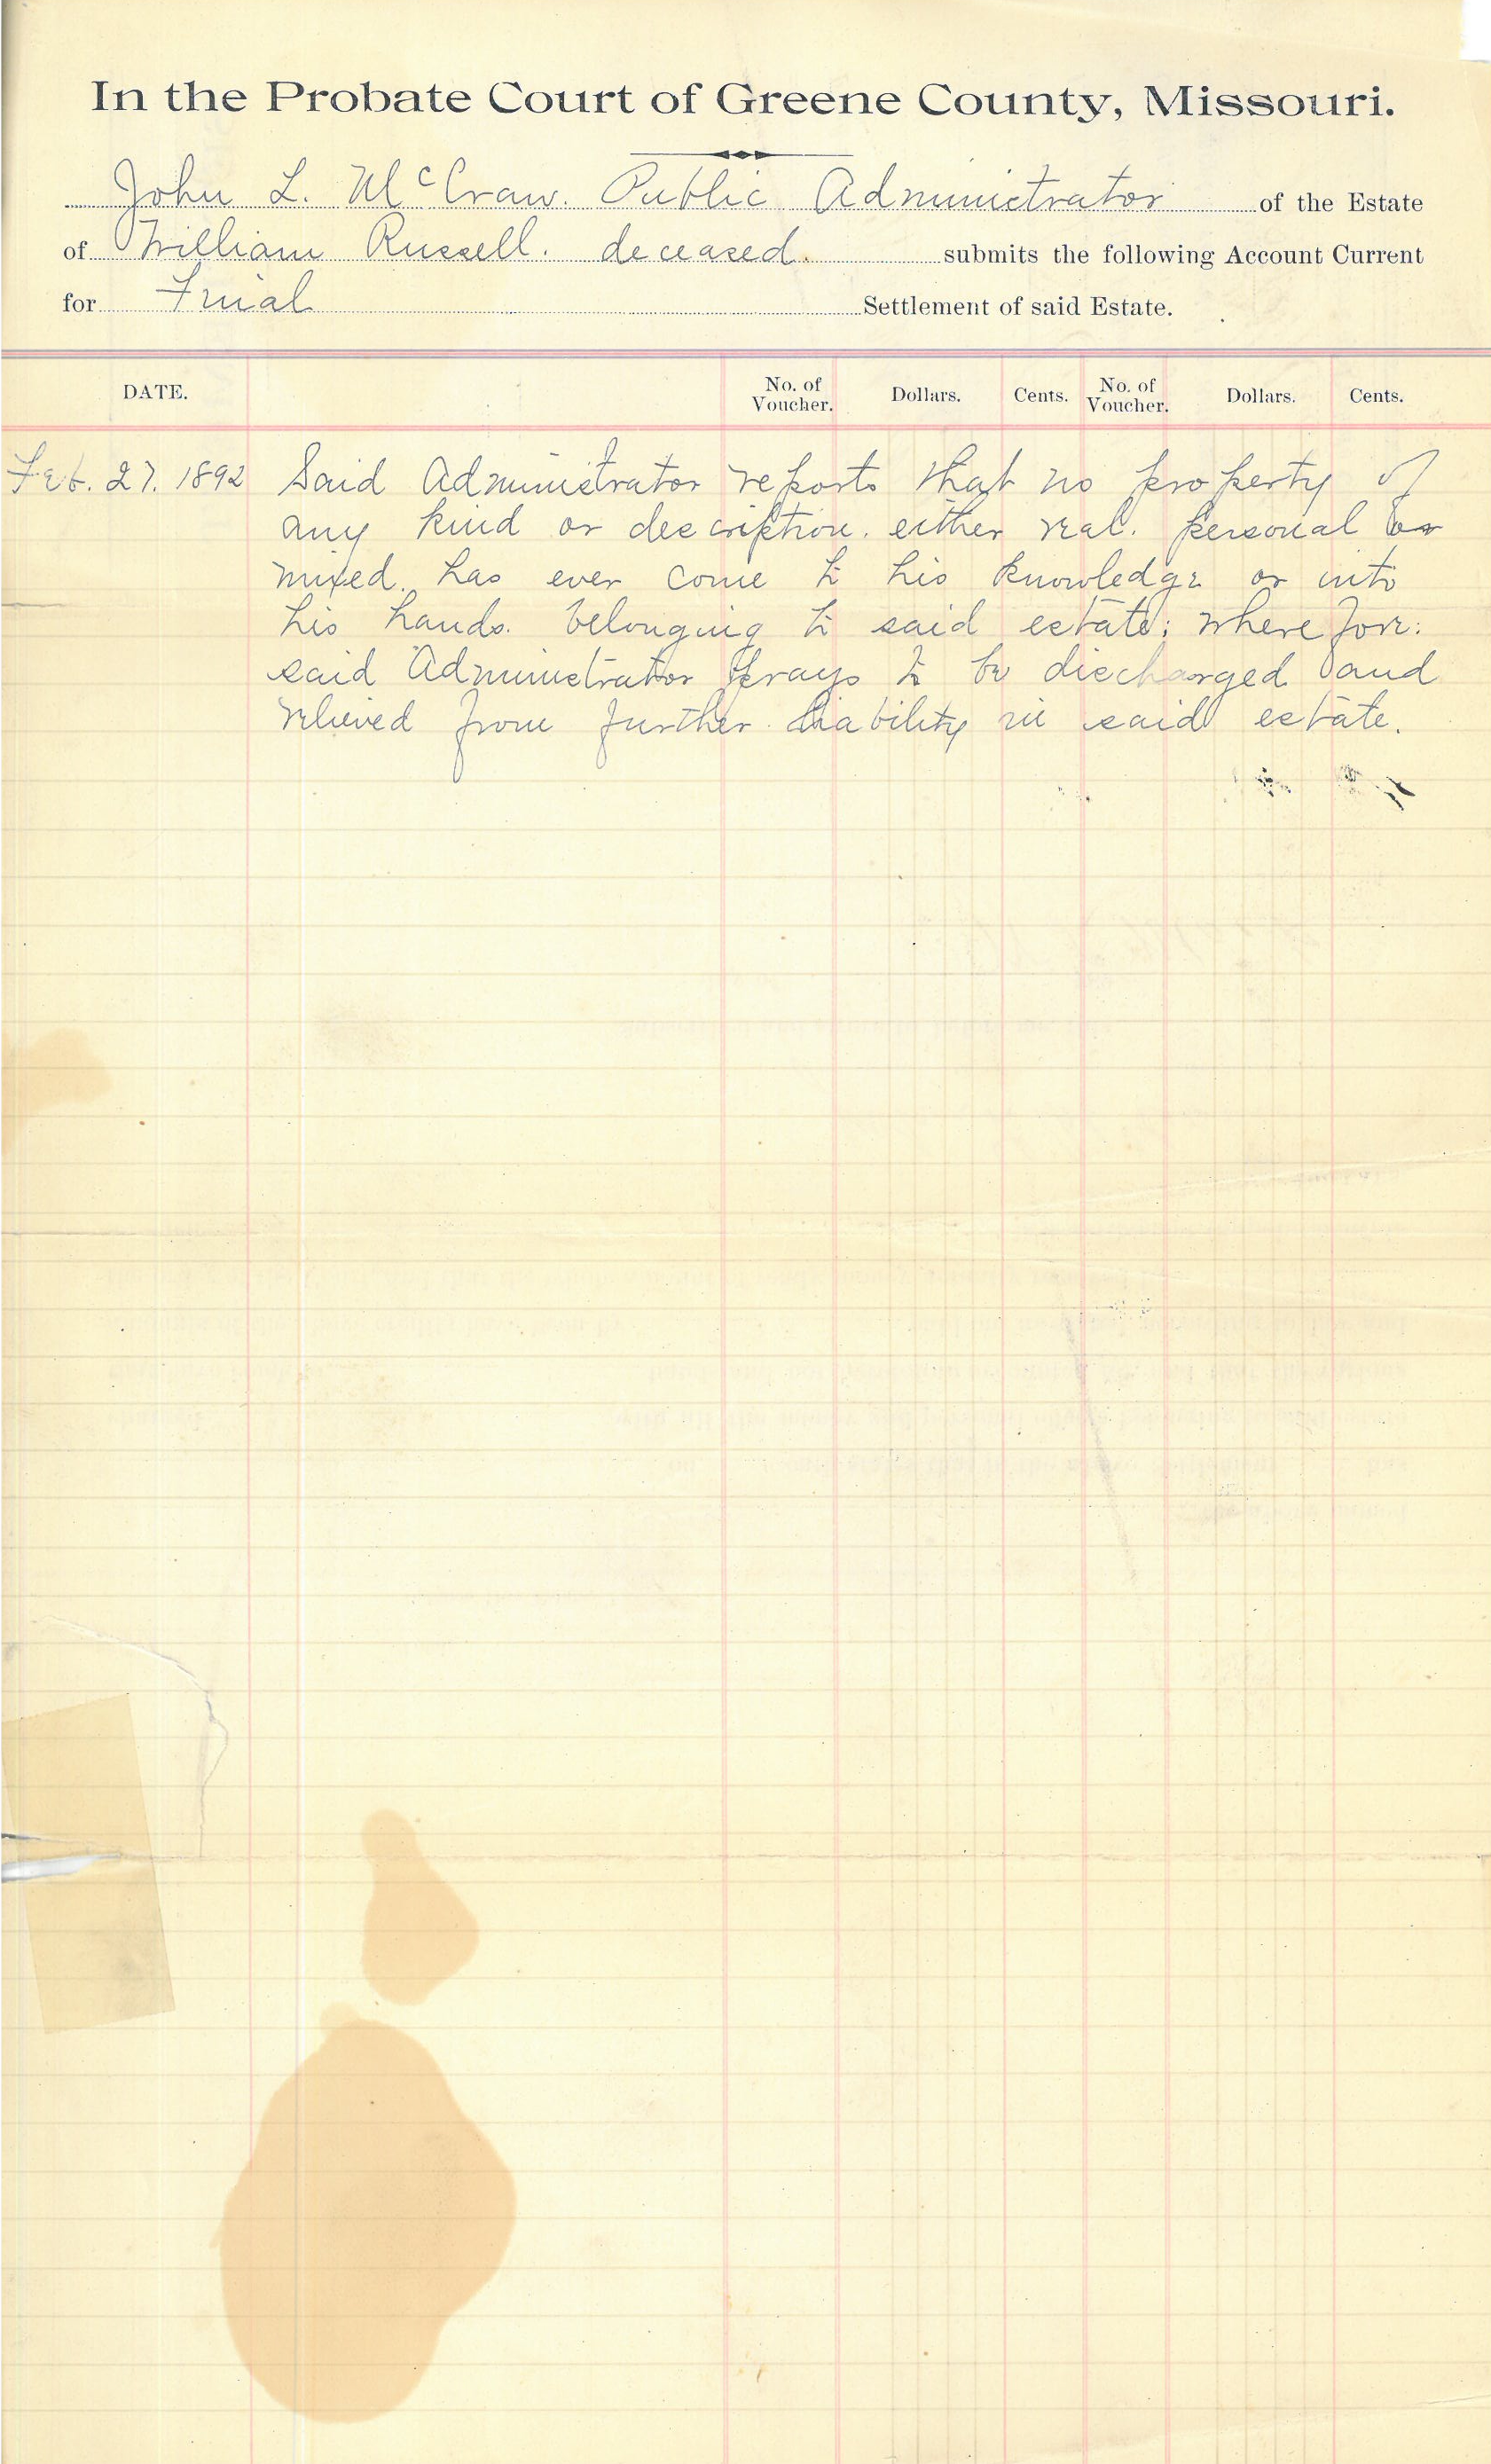 In the Probate Court of Greene County, Missouri.
John L. McCraw. Public Administrator of the Estate
of William Russell. deceased. submits the following Account Current
for Final Settlement of said Estate.
DATE. No. of Voucher. Dollars. Cents. No. of Voucher. Dollars. Cents.
Feb. 27. 1892 Said Administrator reports that no property of
any kind or description. either real. personal or
mixed. has ever come to his knowledge or into
his hands. belonging to said estate; wherefore:
said Administrator prays to be discharged and
relieved from further liability in said estate.